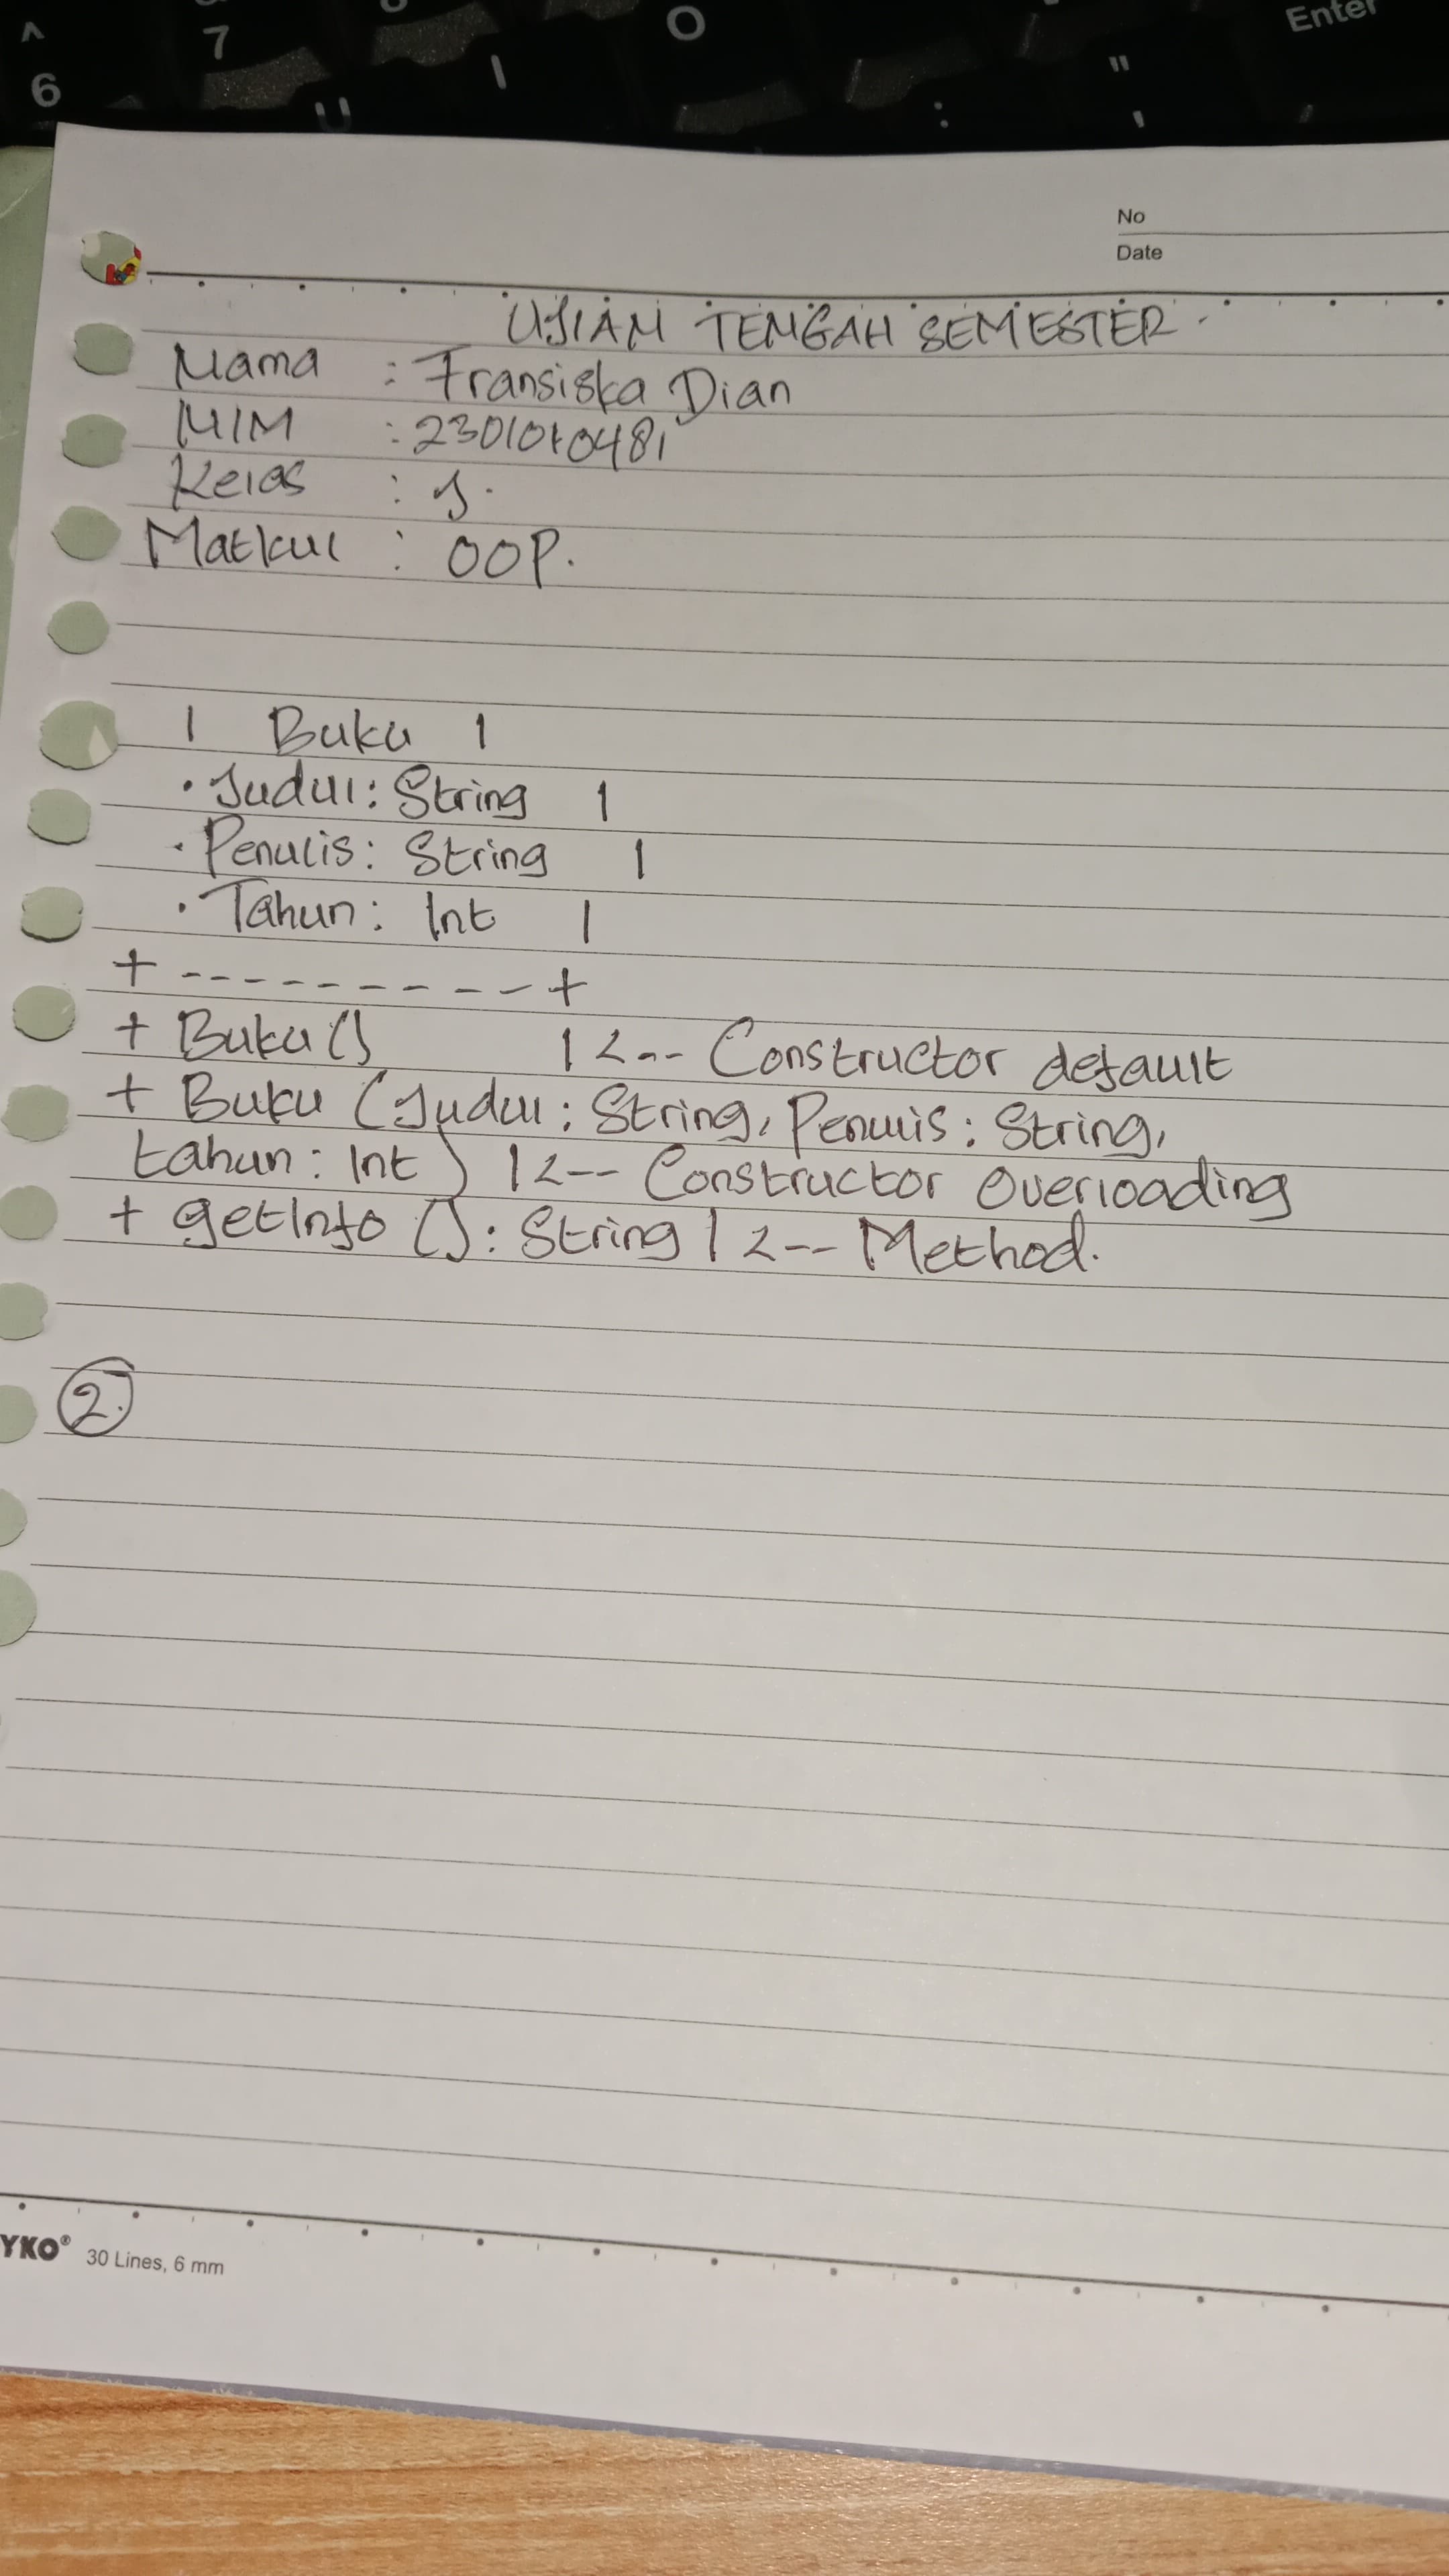 ^
6
7
U
I
O
:
"
'
Enter
No
Date
UJIAN TENGAH SEMESTER.
Nama : Fransiska Dian
NIM : 2301010481
Kelas : J.
Matkul : OOP.
| Buku |
• Judul: String |
• Penulis: String |
• Tahun: Int |
+ --------- +
+ Buku () | <-- Constructor default
+ Buku (Judul: String, Penulis: String,
tahun: Int) | <-- Constructor Overloading
+ getInfo (): String | <-- Method.
2.
YKO® 30 Lines, 6 mm